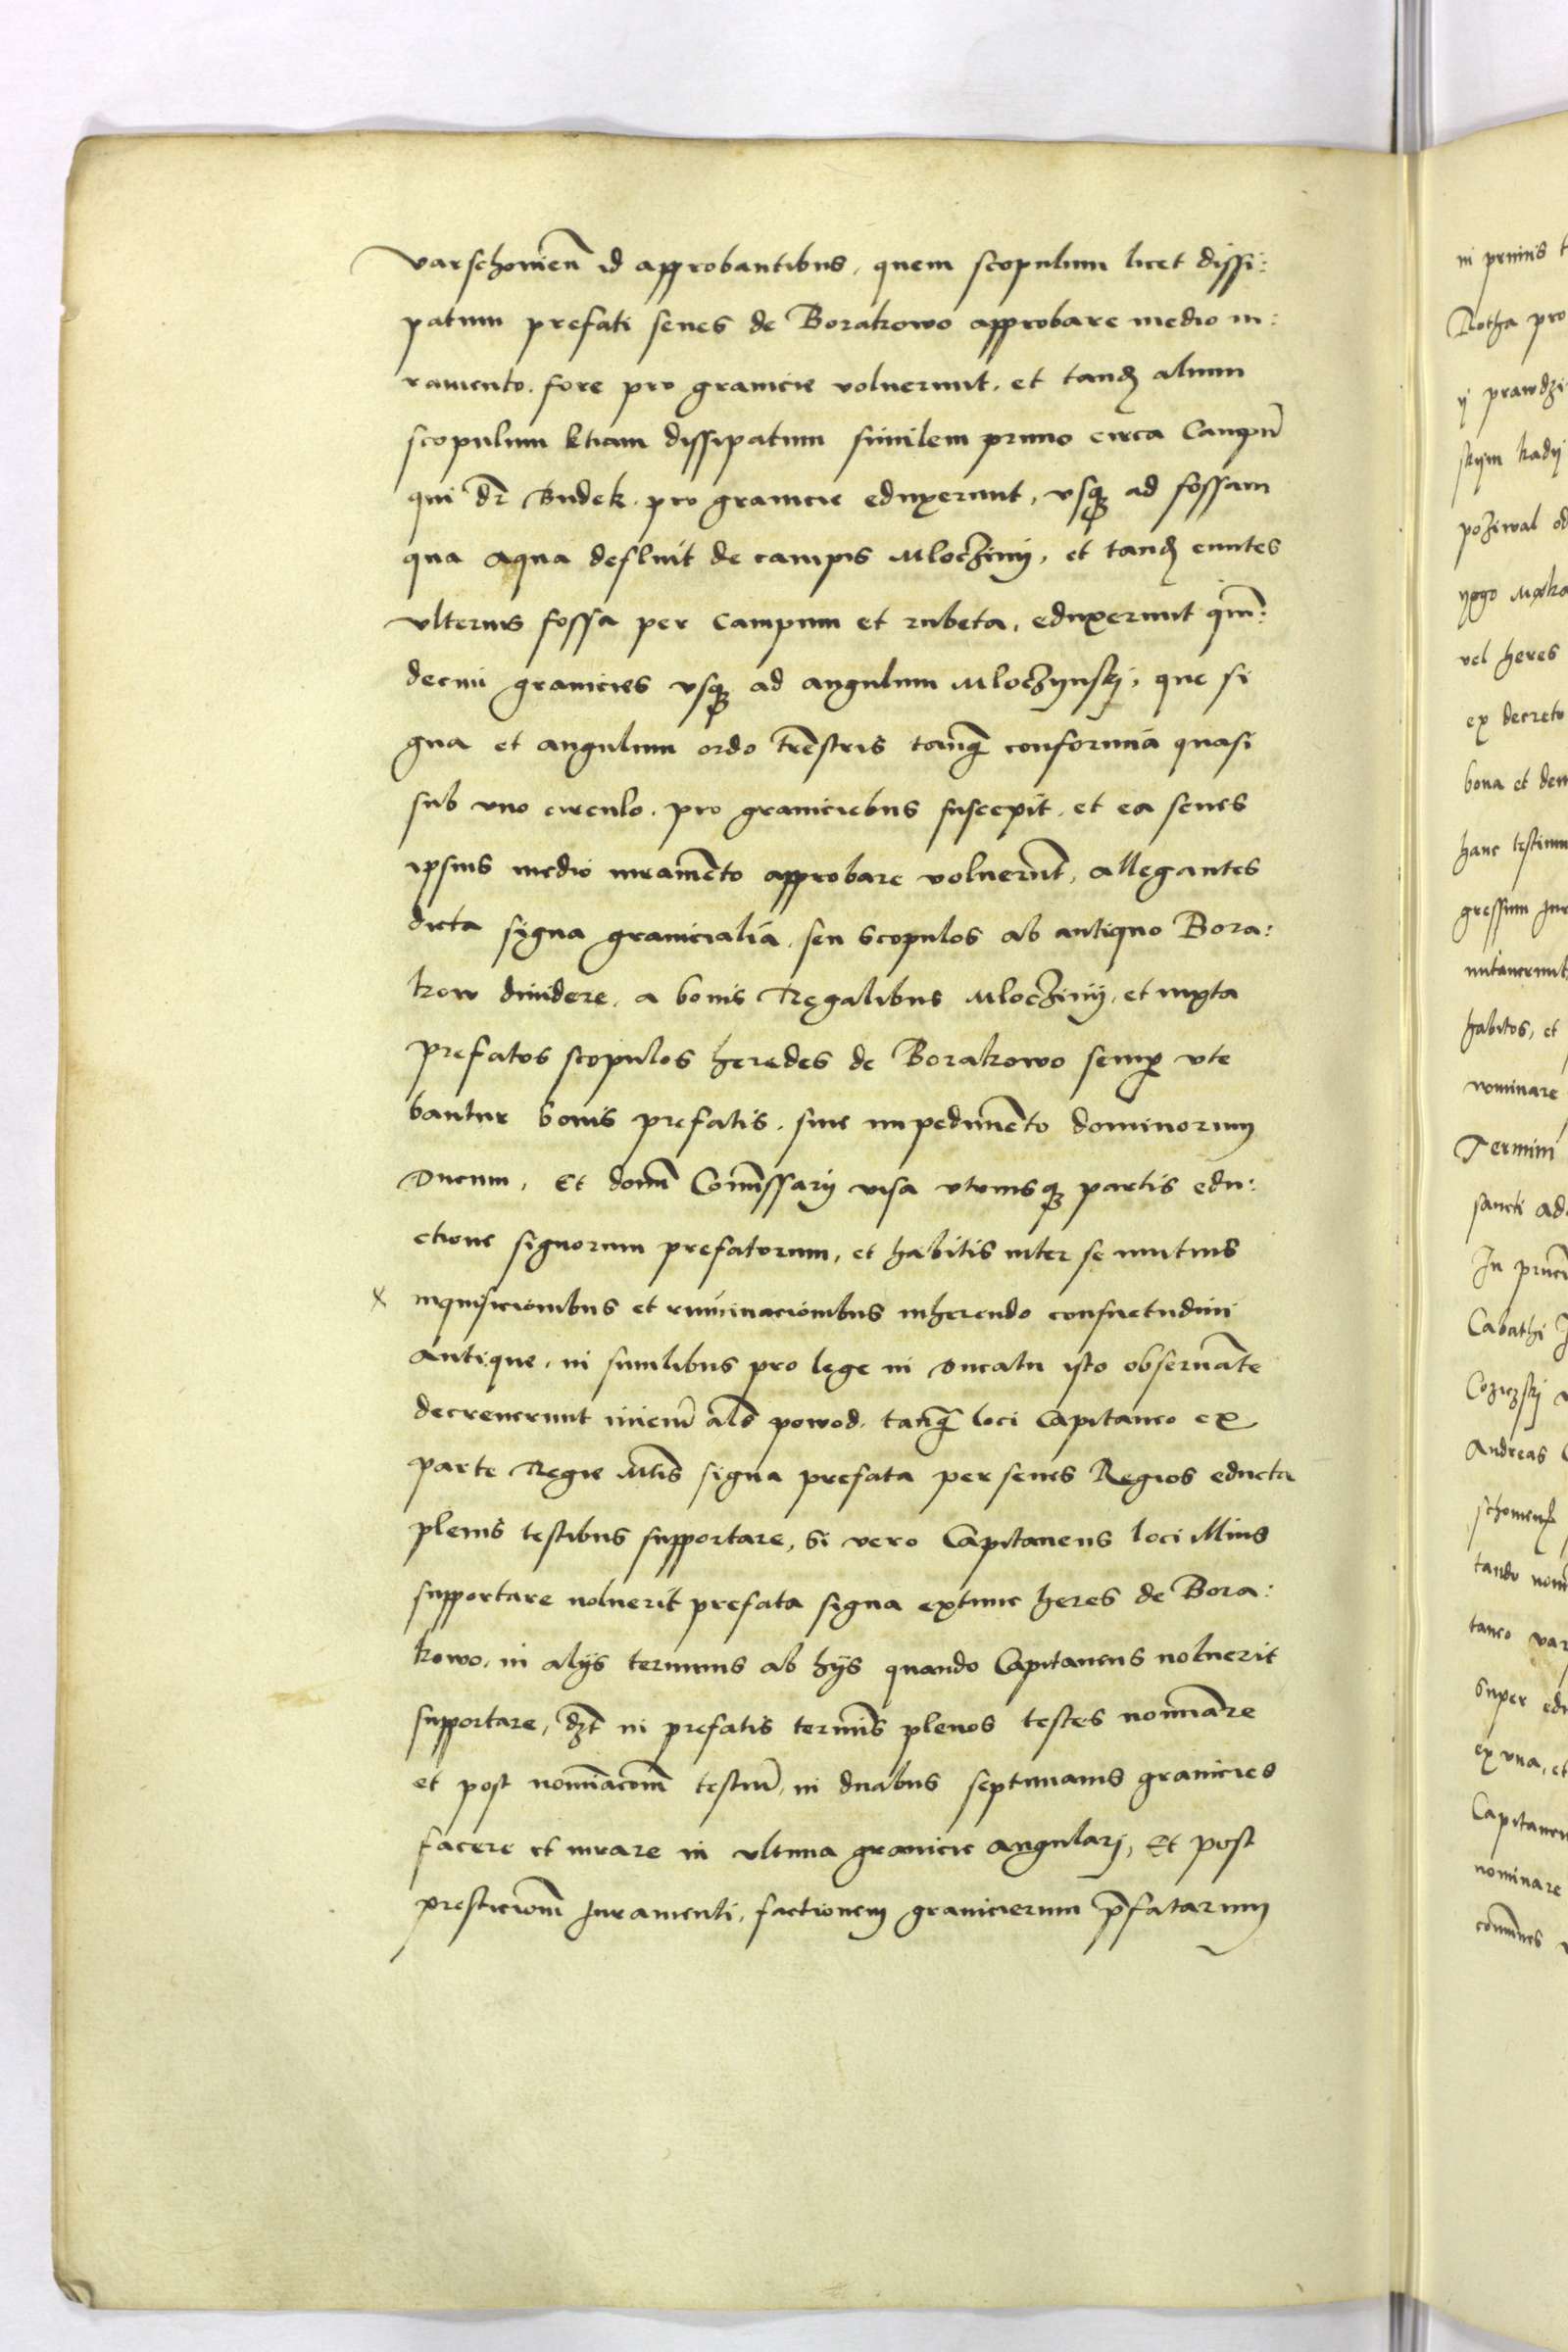 varschowien̄ id approbantibus, quem scopulum licet dissi:
patum prefati senes de Borakowo approbare medio iu:
ramento. fore pro granicie voluerunt. et tandē alium
scopulum etiam dissipatum similem primo circa Campū
qui dr̄ Budek. pro granicie eduxerunt, vsq̨ ad fossam
qua aqua defluit de campis Mloczinÿ, et tandē euntes
vlterius fossa per campum et rubeta, eduxerunt quī:
decim granicies vsq̨ ad angulum Mloczÿnskj, que si
gna et angulum ordo tērestris tanq̄ conformia quasi
sub vno circulo. pro graniciebus suscepit. et ea senes
ipsius medio iuramēto approbare voluerūt, allegantes
dicta signa granicialia. seu scopulos ab antiquo Bora:
kow diuidere. a bonis Regalibus Mloczinÿ, et iuxta
prefatos scopulos heredes de Borakowo semp̄ vte
bantur bonis prefatis. sine impedimēto dominorum
Ducum, Et domī Com̄issarÿ visa vtriusq̨ partis edu:
ctione signorum prefatorum, et habitis inter se mutuis
x inquisicionibus et ruminacionibus inherendo consuetudini
antique, in similibus pro lege in ducatu isto obseruāte
decreuerunt iniciū ał̄s powod. tanq̄ loci Capitaneo ex
parte Regie Mt̄is signa prefata per senes Regios educta
plenis testibus supportare, Si vero Capitaneus loci illius
supportare noluerit prefata signa extunc heres de Bora:
kowo. in alÿs terminis ab hÿs quando Capitaneus noluerit
supportare, dz̄t in prefatis termīs plenos testes nomīare
et post nomīacōm̄ testiū, in duabus septimanis granicies
facere et iurare in vltima granicie angularj, Et post
presticionē Juramenti, factionem granicierum p̄fatarum
in primis
Rotha pro
ÿ prawdzi
kadÿ
poziwal od
vel heres
ex decreto
bona et
hanc
gressum
habitos, et
nominare
Termini
sancti
In
Cabathi
Andreas
tando
taneo
Super
ex vna, et
Capitaneu
nominare